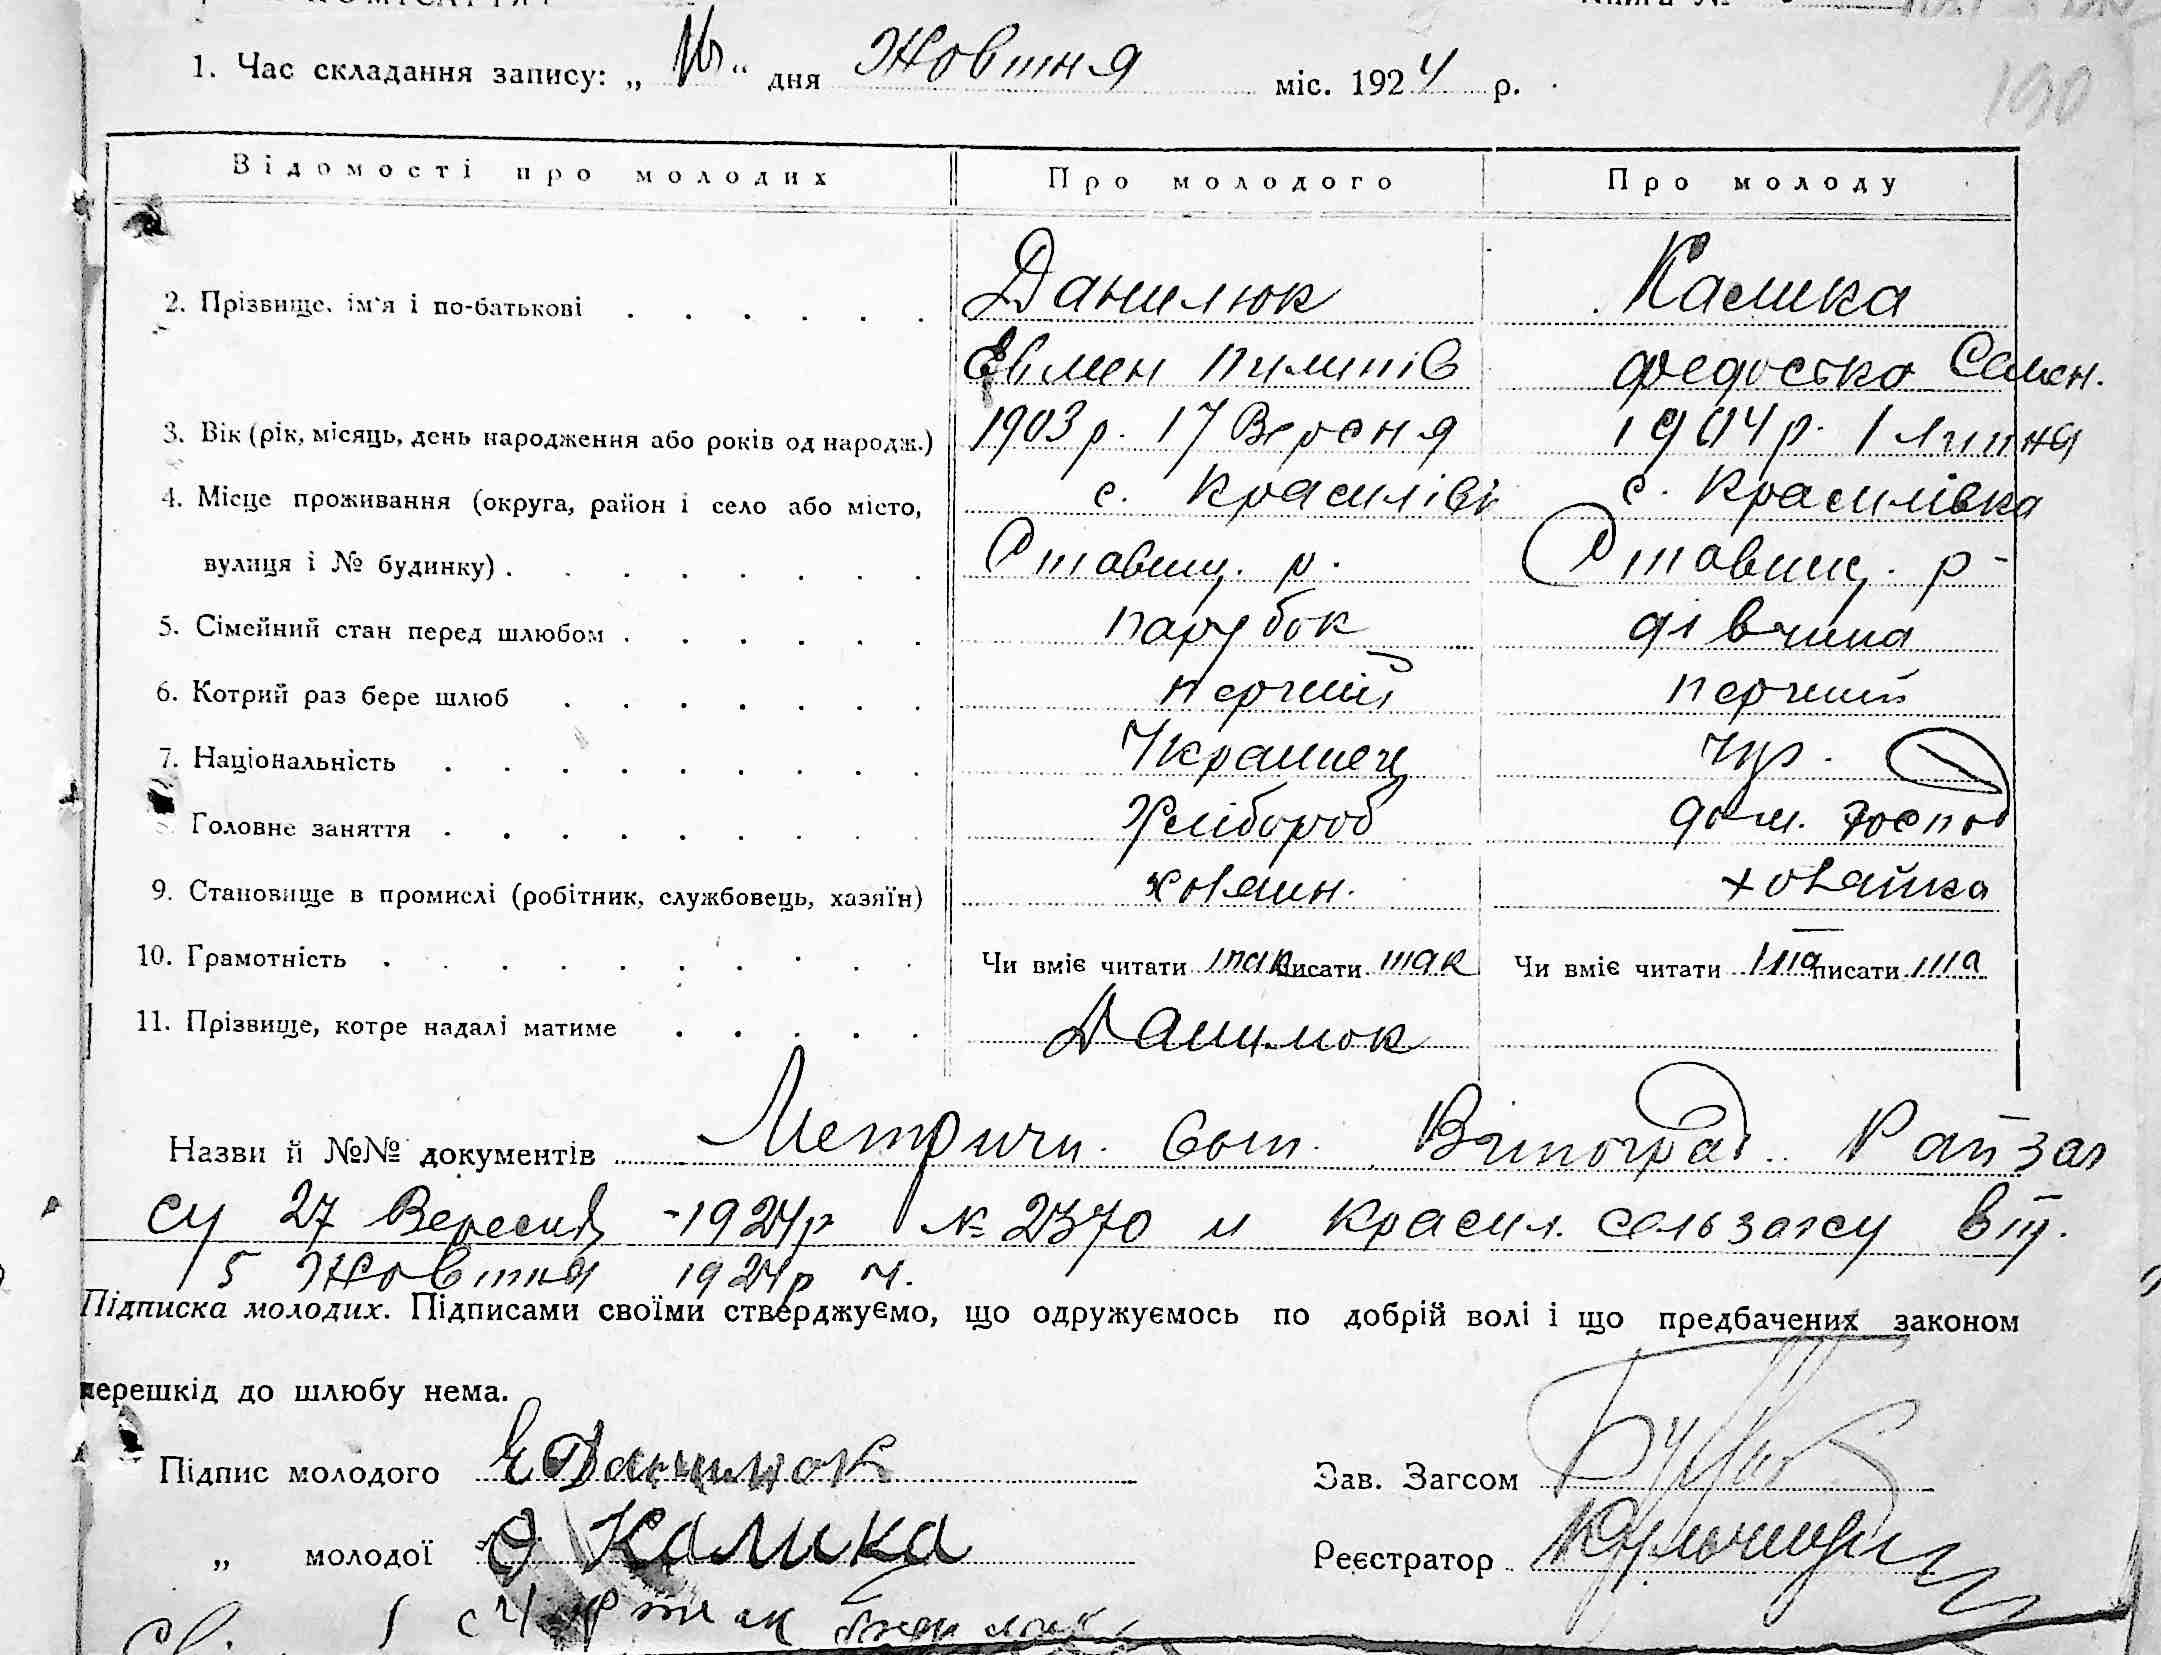 1. Час складання запису: „ “ дня Жовтня міс. 1924 р.
190
Відомості про молодих Про молодого Про молоду
2. Прізвище, ім'я і по-батькові Данилюк Калика
Евмен Пилипів Федостка Семен.
3. Вік (рік, місяць, день народження або років од народж.) 1903 р. 17 Вересня 1904 р. 1 Липня
4. Місце проживання (округа, район і село або місто, с. Красилівк с. Красилівка
вулиця і № будинку) Ставищ. р. Ставищ. р-
5. Сімейний стан перед шлюбом парубок дівчина
6. Котрий раз бере шлюб перчий перчий
7. Національність Украинец Укр.
8. Головне заняття Хлібороб дом. господ
9. Становище в промислі (робітник, службовець, хазяїн) хозяин. хозяйка
10. Грамотність Чи вміє читати так писати так Чи вміє читати та писати та
11. Прізвище, котре надалі матиме Данилюк
Назви й №№ документів Метричн. Виноград. Райзаг
су 27 Вересня 1924р № 2370 и Красил. сельзагсу від.
5 Жовтня 1924р ч.
Підписка молодих. Підписами своїми стверджуємо, що одружуємось по добрій волі і що предбачених законом
перешкід до шлюбу нема.
Підпис молодого Е Данилюк Зав. Загсом
„ молодої Ф Калика Реєстратор